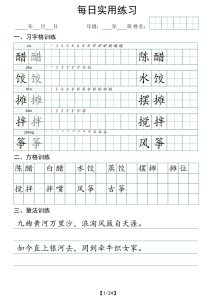 每日实用练习
____年__月__日 年级:____年__班 姓名:
一、习字格训练
cù
醋 醋 陈醋
jiǎo
饺 饺 水饺
tān
摊 摊 摆摊
bàn
拌 拌 搅拌
zhēng
筝 筝 风筝
二、方格训练
陈醋 白醋 水饺 蒸饺 摆摊 摊位
搅拌 拌嘴 风筝 古筝
三、章法训练
九曲黄河万里沙,浪淘风簸自天涯。
如今直上银河去,同到牵牛织女家。
【1/24】